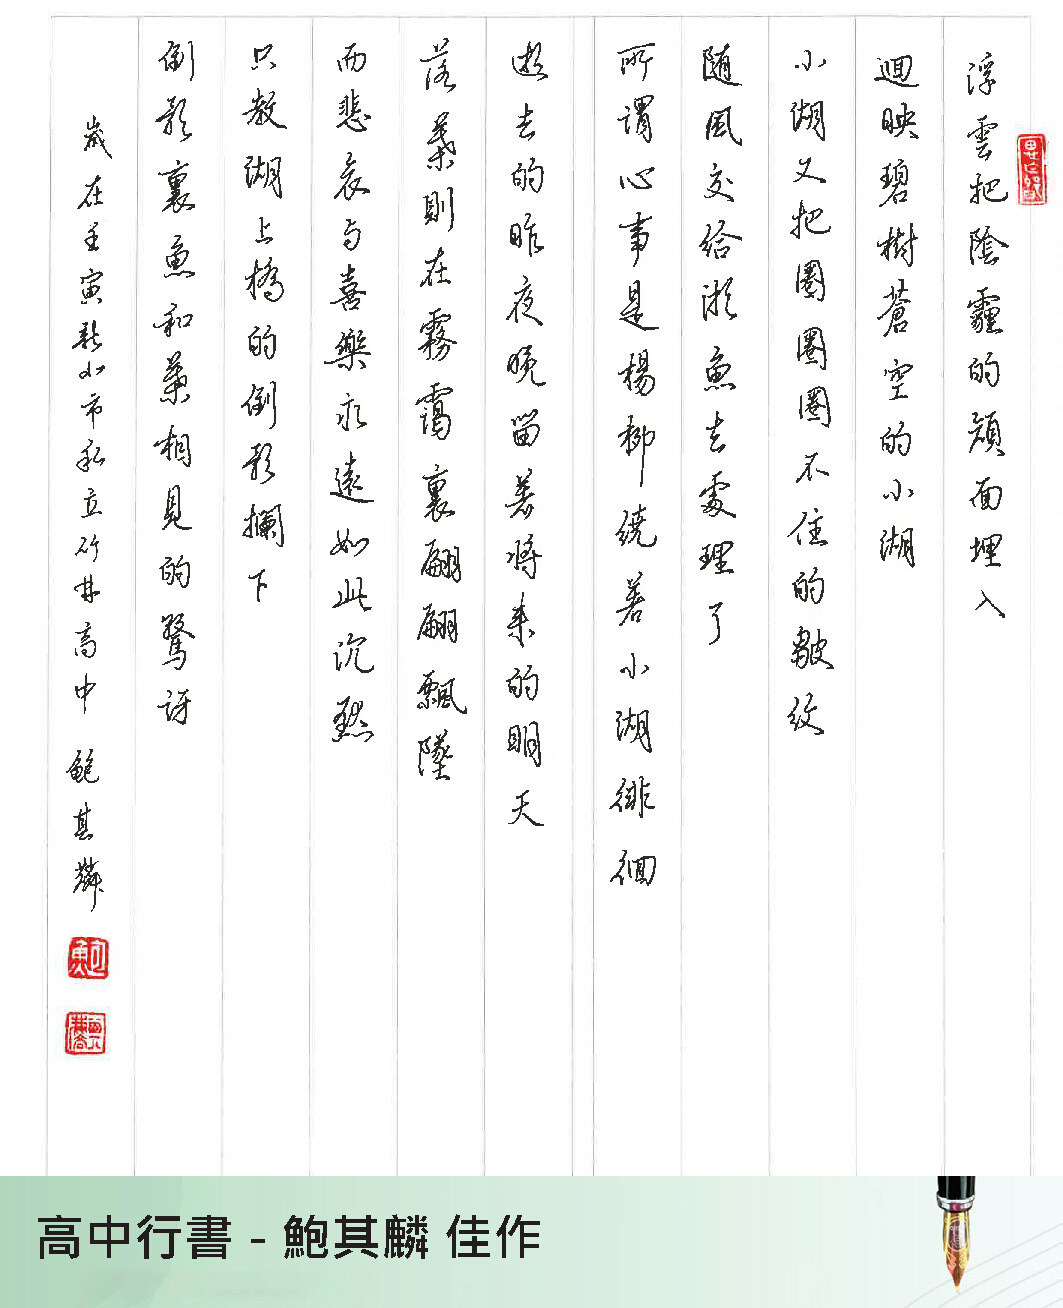 浮雲把陰霾的顏面埋入
迴映碧樹蒼空的小湖
小湖又把圈圈圈不住的皺紋
隨風交給游魚去處理了
所謂心事是楊柳繞著小湖徘徊
逝去的昨夜晚留著將來的明天
落葉則在霧靄裏翩翩飄墜
而悲哀與喜樂永遠如此沉默
只教湖上橋的倒影攔下
倒影裏魚和葉相見的驚訝
歲在壬寅新北市私立竹林高中 鮑其麟
高中行書 - 鮑其麟 佳作